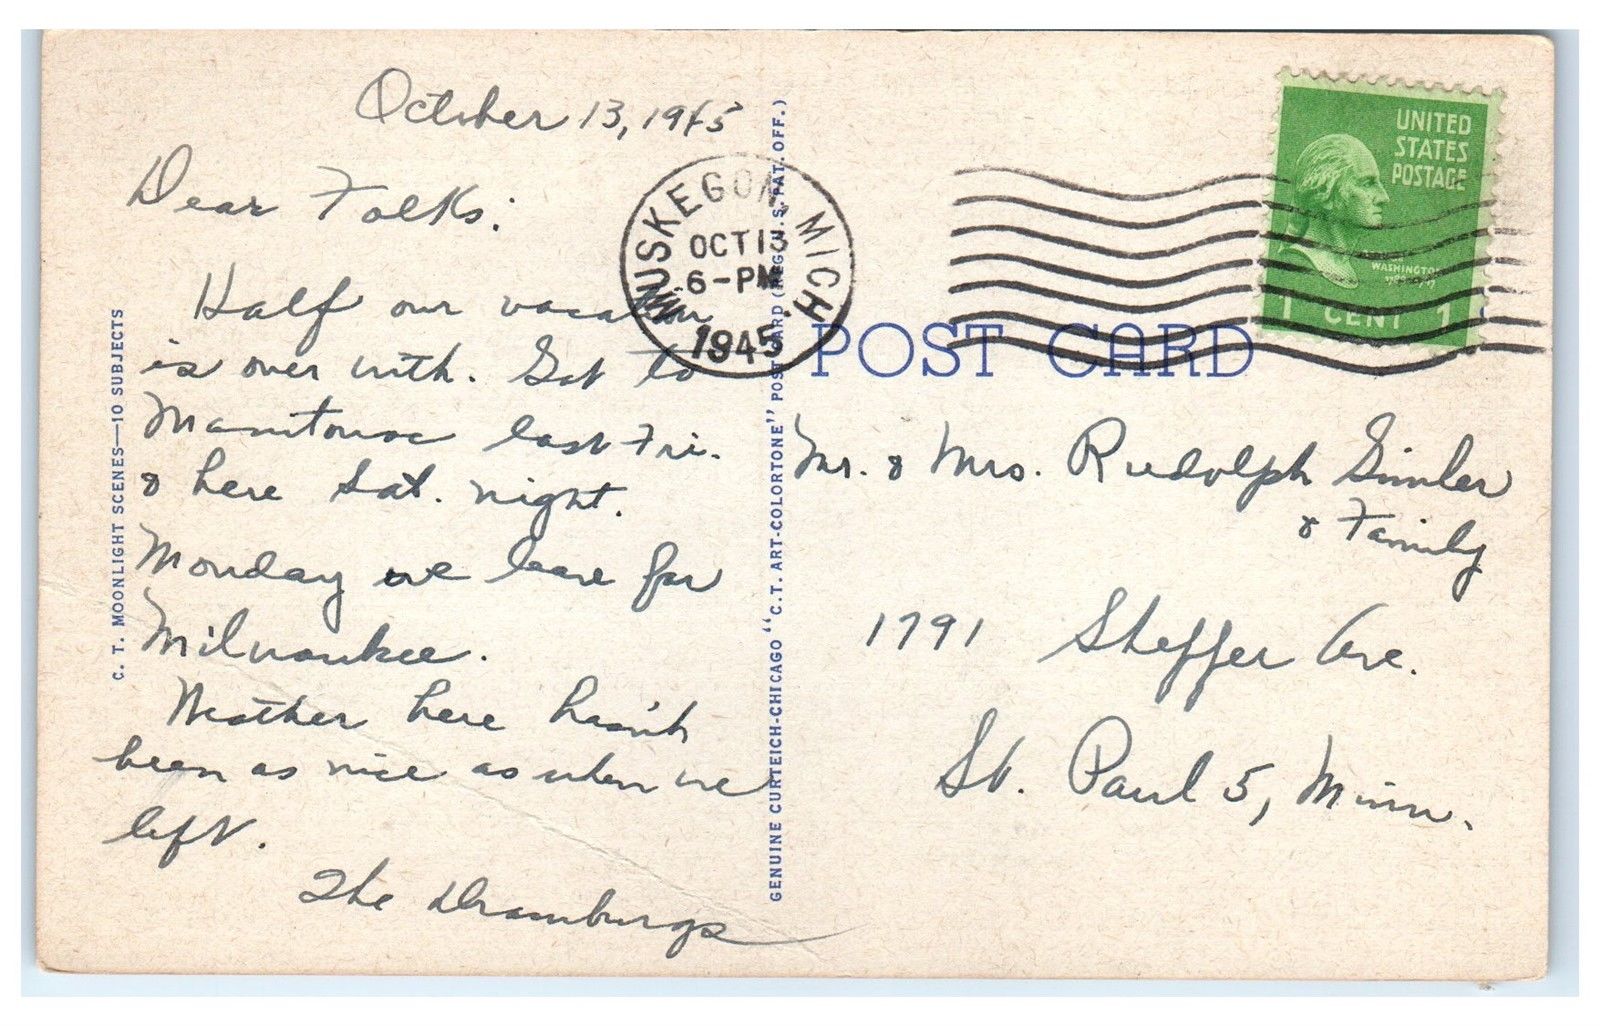 October 13, 1945
Dear Folks:
Half our vacation
is over with. Got to
Manitowoc last Fri.
& here Sat. night.
Monday we leave for
Milwaukee.
Weather here hasn't
been as nice as when we
left.
The Dramburgs
C. T. MOONLIGHT SCENES—10 SUBJECTS
GENUINE CURTEICH-CHICAGO "C. T. ART-COLORTONE" POST CARD (REG. U. S. PAT. OFF.)
MUSKEGON, MICH.
OCT 13
6-PM
1945
UNITED
STATES
POSTAGE
WASHINGTON
1 CENT 1
POST CARD
Mr. & Mrs. Rudolph Simler
& Family
1791 Sheffer Ave.
St. Paul 5, Minn.